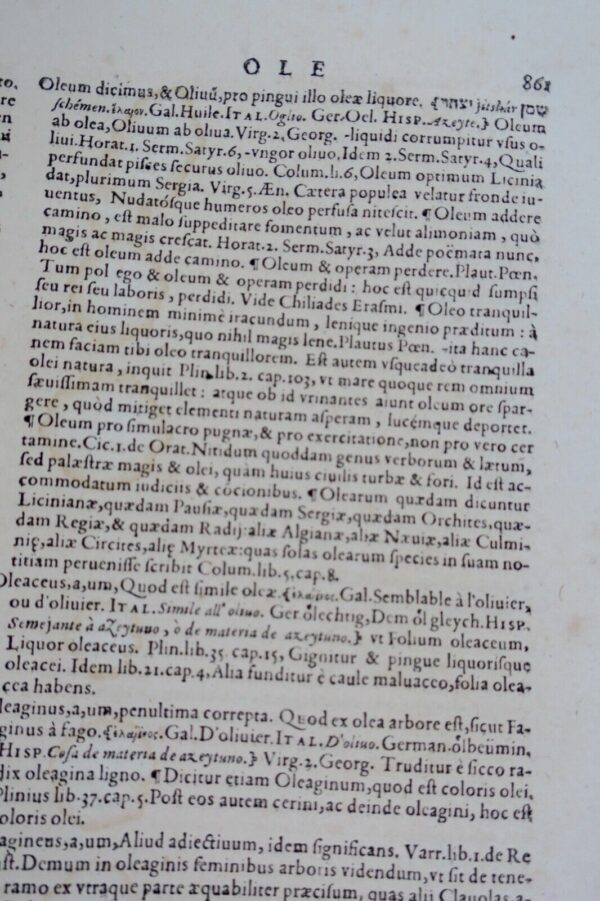 OLE 861
to.
re
ui
Oleum dicimus,&Oliuũ,pro pingui illo oleæ liquore. {שמן יצהר jitshár
schémen. ἔλαιον. Gal.Huile. ITAL. Oglio. Ger.Oel. HISP. Azeyte.} Oleum
ab olea, Oliuum ab oliua. Virg.2, Georg. -liquidi corrumpitur vsus o-
liui. Horat.1. Serm.Satyr.6, -vngor oliuo, Idem 2.Serm.Satyr.4, Quali
perfundat pisces securus oliuo. Colum.li.6, Oleum optimum Licinia
dat, plurimum Sergia. Virg.5.Æn. Cætera populea velatur fronde iu-
uentus, Nudatósque humeros oleo perfusa nitescit. ¶Oleum addere
camino, est malo suppeditare fomentum, ac velut alimoniam, quò
magis ac magis crescat. Horat.2. Serm.Satyr.3, Adde poëmata nunc,
hoc est oleum adde camino. ¶Oleum & operam perdere. Plaut. Pœn.
Tum pol ego & oleum & operam perdidi: hoc est quicquid sumpsi
seu rei seu laboris, perdidi. Vide Chiliades Erasmi. ¶Oleo tranquil-
lior, in hominem minimè iracundum, lenique ingenio præditum: à
natura eius liquoris, quo nihil magis lene. Plautus Pœn. -ita hanc ca-
nem faciam tibi oleo tranquillorem. Est autem vsqueadeò tranquilla
olei natura, inquit Plin.lib.2. cap.103, vt mare quoque rem omnium
sæuissimam tranquillet: atque ob id vrinantes aiunt oleum ore spar-
gere, quòd mitiget elementi naturam asperam, lucémque deportet.
¶Oleum pro simulacro pugnæ,& pro exercitatione, non pro vero cer
tamine. Cic.1.de Orat. Nitidum quoddam genus verborum & lætum,
sed palæstræ magis & olei, quàm huius ciuilis turbæ & fori. Id est ac-
commodatum iudiciis & cocionibus. ¶Olearum quædam dicuntur
Licinianæ, quædam Pausiæ, quædam Sergiæ, quædam Orchites, quæ-
dam Regiæ,& quædam Radij: aliæ Algianæ, aliæ Næuiæ, aliæ Culmi-
nię, aliæ Circites, alię Myrteæ: quas solas olearum species in suam no-
titiam peruenisse scribit Colum.lib.5.cap.8.
Oleaceus,a,um, Quod est simile oleæ. {ἐλαΐνος. Gal.Semblable à l'oliuier,
ou d'oliuier. ITAL. Simile all' oliuo. Ger ölechtig, Dem öl gleych. HISP.
Semejante à aZeytuno, ò de materia de azeytuno.} vt Folium oleaceum,
Liquor oleaceus. Plin.lib.35. cap.15, Gignitur & pingue liquorisque
oleacei. Idem lib.21.cap.4, Alia funditur è caule maluacco, folia olea-
cea habens.
leaginus,a,um, penultima correpta. Quod ex olea arbore est, sicut Fa-
ginus à fago. {ἐλαΐνος. Gal.D'oliuier. ITAL. D'oliuo. German.ölbeümin.
HISP. Cosa de materia de azeytuno.} Virg.2, Georg. Truditur è sicco ra-
dix oleagina ligno. ¶Dicitur etiam Oleaginum, quod est coloris olei.
Plinius lib.37.cap.5. Post eos autem cerini, ac deinde oleagini, hoc est
oloris olei.
agineus,a,um, Aliud adiectiuum, idem significans. Varr.lib.1.de Re
st. Demum in oleaginis seminibus arboris videndum, vt sit de tene-
ramo ex vtraque parte æquabiliter præcisum, quas alij Clauolas,a-